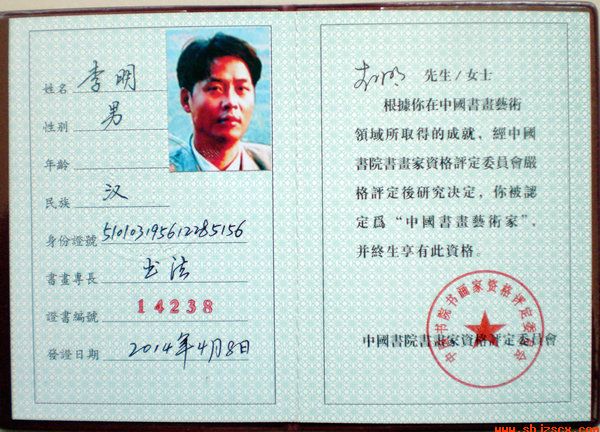 姓名 李明
性别 男
年齡
民族 汉
身份證號 510103195612285156
書畫專長 书法
證書編號 14238
發證日期 2014年4月8日
李明 先生/女士
根據你在中國書畫藝術
領域所取得的成就，經中國
書院書畫家資格評定委員會嚴
格評定後研究决定，你被認
定爲“中國書畫藝術家”，
并終生享有此資格。
中国书院书画家资格评定委员会
中國書院書畫家資格評定委員會